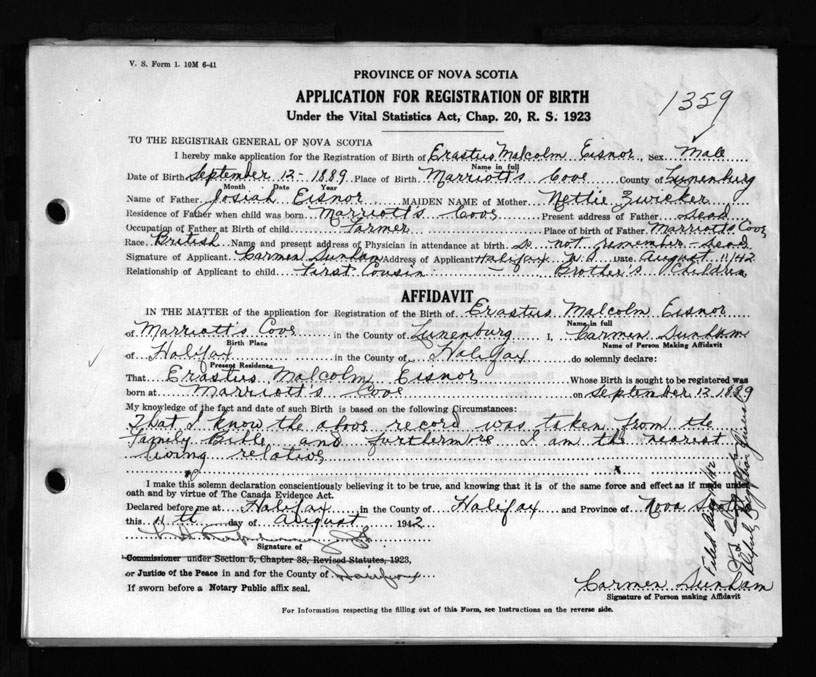 V. S. Form 1. 10M 6-41
PROVINCE OF NOVA SCOTIA
APPLICATION FOR REGISTRATION OF BIRTH
1359
Under the Vital Statistics Act, Chap. 20, R. S. 1923
TO THE REGISTRAR GENERAL OF NOVA SCOTIA
I hereby make application for the Registration of Birth of Erastus Malcolm Eisnor, Sex Male
Name in full
Date of Birth September 12 - 1889 Place of Birth Marriott's Cove County of Lunenburg
Month Date Year
Name of Father Josiah Eisnor MAIDEN NAME of Mother Nettie Zwicker
Residence of Father when child was born Marriott's Cove Present address of Father Dead
Occupation of Father at Birth of child Farmer Place of birth of Father Marriott's Cove
Race British Name and present address of Physician in attendance at birth Do not remember - Dead
Signature of Applicant Carmen Dunham Address of Applicant Halifax N S Date August 11/42
Relationship of Applicant to child First Cousin Brother's Children
AFFIDAVIT
IN THE MATTER of the application for Registration of the Birth of Erastus Malcolm Eisnor
Name in full
of Marriott's Cove in the County of Lunenburg I, Carmen Dunham
Birth Place Name of Person Making Affidavit
of Halifax in the County of Halifax do solemnly declare:
Present Residence
That Erastus Malcolm Eisnor Whose Birth is sought to be registered was
born at Marriott's Cove on September 12 1889
My knowledge of the fact and date of such Birth is based on the following Circumstances:
That I know the above record was taken from the
Family Bible and furthermore I am the nearest
living relative
I make this solemn declaration conscientiously believing it to be true, and knowing that it is of the same force and effect as if made under
oath and by virtue of The Canada Evidence Act.
Declared before me at Halifax in the County of Halifax and Province of Nova Scotia
this 11th day of August 1942
Signature of
Commissioner under Section 5, Chapter 38, Revised Statutes, 1923,
or Justice of the Peace in and for the County of Halifax
If sworn before a Notary Public affix seal.
Carmen Dunham
Signature of Person making Affidavit
For Information respecting the filling out of this Form, see Instructions on the reverse side.